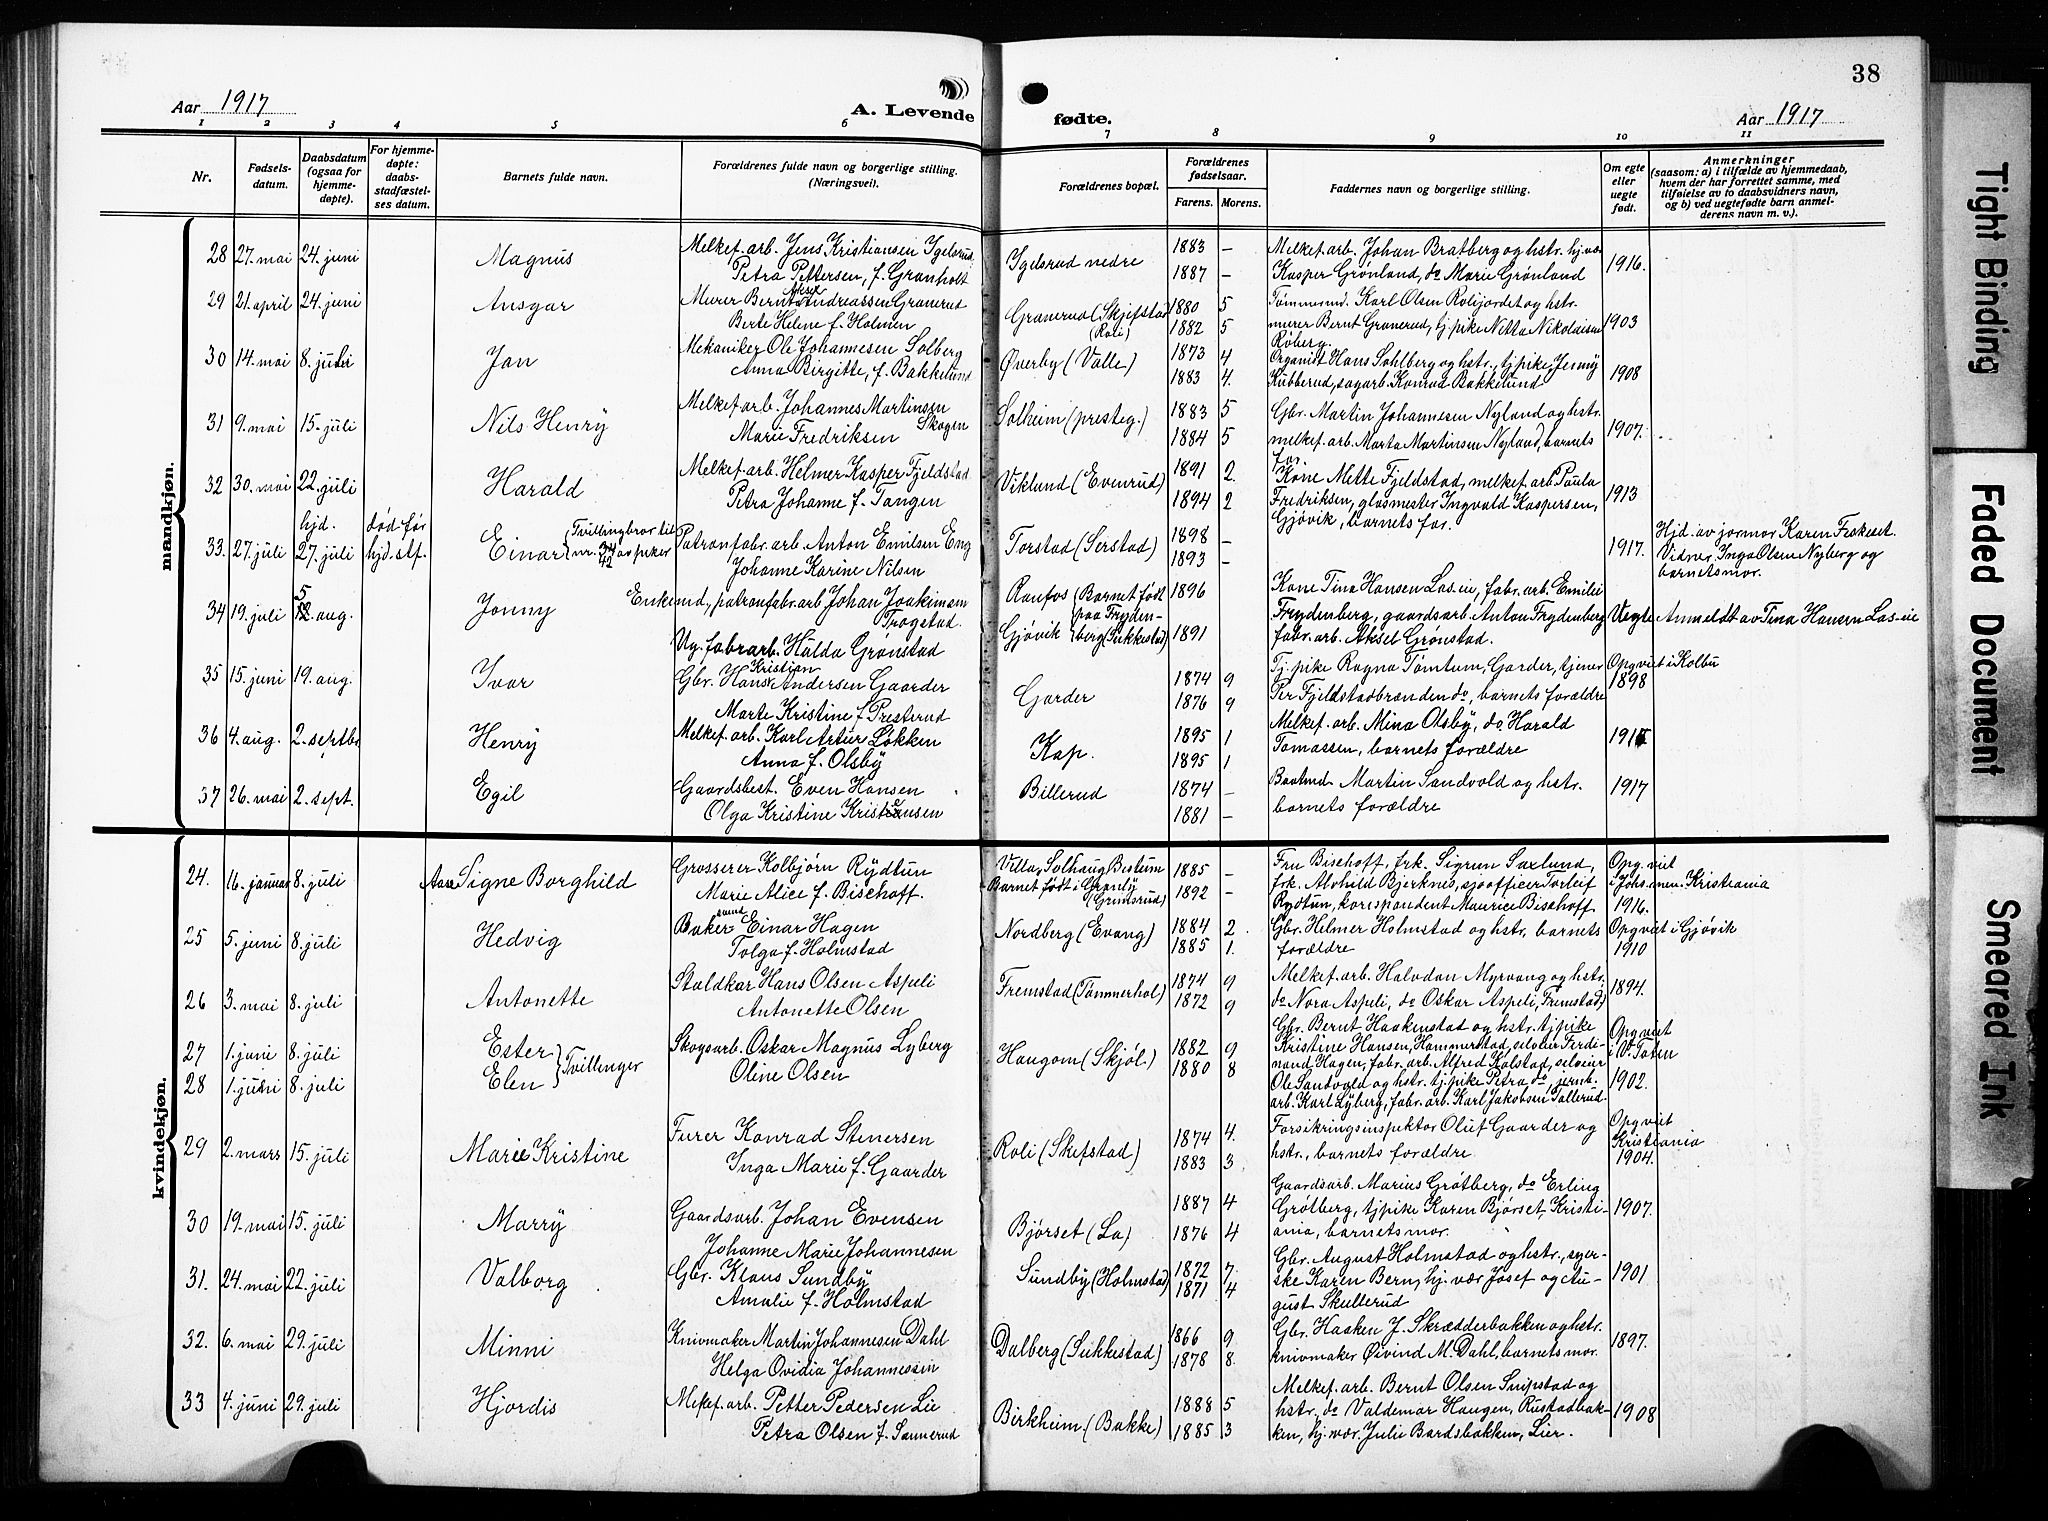 38
Aar 1917
A. Levende
fødte.
Aar 1917
1 2 3 4 5 6 7 8 9 10 11
Nr.
Fødsels-
datum.
Daabsdatum
(ogsaa for
hjemme-
døpte).
For hjemme-
døpte:
daabs-
stadfæstel-
ses datum.
Barnets fulde navn.
Forældrenes fulde navn og borgerlige stilling.
(Næringsvei).
Forældrenes bopæl.
Forældrenes
fødselsaar.
Farens. Morens.
Faddernes navn og borgerlige stilling.
Om egte
eller
uegte
født.
Anmerkninger
(saasom: a) i tilfælde av hjemmedaab,
hvem der har forrettet samme, med
tilføielse av to daabsvidners navn,
og b) ved uegtefødte barn anmel-
derens navn m. v.).
mandkjøn.
28 27. mai 24. juni Magnus
Melkef. arb. Jens Kristiansen Ygelsrud
Petra Pettersen, f. Grønholt
Ygelsrud nedre
1883 –
1887 –
Melkef. arb. Johan Bratberg og hstr. hj. vær
Kasper Grønland, do Marie Grønland
1916.
29 21. april 24. juni Ansgar
Murer Bernt Aksel Andreassen Granerud
Berte Helene f. Holmen
Granerud (Skjefstad
(Roli)
1880 5
1882 5
Tømmermd. Karl Olsen Rolijordet og hstr.
murer Bernt Granerud, tj. pike Netta Nikolaisen
Røberg.
1903
30 14. mai 8. juli Jan
Mekaniker Ole Johannesen Solberg
Anna Birgitte, f. Bakkelund
Øverby (Valle)
1873 4
1883 4.
Organist Hans Sohlberg og hstr., tj. pike Jenny
Kubberud, sagarb. Konrad Bakkelund
1908
31 9. mai 15. juli Nils Henry
Melkef. arb. Johannes Martinsen
Skogen
Marie Fredriksen
Solheim (presteg.)
1883 5
1884 5
Gbr. Martin Johannesen Nyland og hstr.
melkef. arb. Marta Martinsen Nyland, barnets
far
1907.
32 30. mai 22. juli Harald
Melkef. arb. Helmer Kasper Fjeldstad
Petra Johanne f. Tangen
Viklund (Evenrud)
1891 2.
1894 2
Kone Mette Fjeldstad, melkef. arb. Paula
Fredriksen, glasmester Ingvald Kaspersen,
Gjøvik, barnets far.
1913
33. 27. juli hjd. 27. juli død før hjd. stf.
Einar (Tvillingbror til
nr. 42 av piker
Patronfabr. arb. Anton Emilsen Eng
Johanne Karine Nilsen
Torstad (Serstad)
1898 –
1893 –
1917.
Hjd. av jormor Karen Feskeset.
Vidner, Inga Olsen Nyberg og
barnets mor.
34 19. juli 5. aug. Jonny
Enkemd., patronfabr. arb. Johan Joakimsen
Trogstad.
Ug. fabr. arb. Hulda Grønstad
Raufos (Barnet født
paa Fryden-
Gjøvik berg (Sukkestad)
1896
1891
Kone Tina Hansen Las-ie, fabr. arb. Emilie
Frydenberg, gaardsarb. Anton Frydenberg
fabr. arb. Aksel Grønstad.
Uegte Anmeldt av Tina Hansen Las-ie
35 15. juni 19. aug. Ivar
Gbr. Hans Kristian Andersen Gaarder
Marte Kristine f. Presterud
Garder
1874 9
1876 9
Tj. pike Ragna Tømtum, Garder, tjener
Per Fjeldstadbrænden do, barnets forældre
Opg. viet i Kolbu
1898
36 4. aug. 2. septbr. Henry
Melkef. arb. Karl Artur Løkken
Anna f. Olsby
Kap.
1895 1
1895 1
Melkef. arb. Mina Olsby, do Harald
Tomassen, barnets forældre
37 26. mai 2. sept. Egil
Gaardsbest. Even Hansen
Olga Kristine Kristiansen
Billerud
1874 –
1881 –
Baatmd Martin Sandvold og hstr.
barnets forældre
1917
kvindekjøn.
24. 16. januar 8. juli Aase Signe Borghild
Grosserer Kolbjørn Rydtun
Marie Alice f. Bischoff.
Villa Solhaug Bistum
Barnet født i Granly
(Grimsrud)
1885 –
1892 –
Fru Bischoff, frk. Sigrun Saxlund,
frk. Alvhild Bjerknes, sjøofficer Torleif
Rydtun, korespondent Maurice Bischoff
Opg. viet
i Johs. men. Kristiania
1916.
25 5. juni 8. juli Hedvig
Bakersvend Einar Hagen
Tolga f. Holmstad
Nordberg (Evang)
1884 2
1885 1.
Gbr. Helmer Holmstad og hstr. barnets
forældre
Opg viet i Gjøvik
1910
26 3. mai 8. juli Antonette
Staldkar Hans Olsen Aspeli
Antonette Olsen
Fremstad (Tømmerhol)
1874 9
1872 9
Melkef. arb. Halvdan Myrvang og hstr.
do Nora Aspeli, do Oskar Aspeli, Fremstad)
1894.
27 1. juni 8. juli Ester
28 1. juni 8. juli Elen
Tvillenger
Skogsarb. Oskar Magnus Lyberg
Oline Olsen
Haugom (Skjøl.)
1882 9
1880 8
Gbr. Bernt Haakenstad og hstr. tj. pike
Kristine Hansen, Hammerstad, selveier Ferdi-
nand Hagen, fabr. arb. Alfred Kolstad, selveier
Ole Sandvold og hstr. tj. pike Petra do, jernb.
arb. Karl Lyberg, fabr. arb. Karl Jakobsen Tollerud.
Opg. viet
i V. Toten
1902.
29 2. mars 15. juli Marie Kristine
Furer Konrad Stenersen
Inga Marie f. Gaarder
Roli (Skefstad)
1874 4.
1883 3
Forsikringsinspektør Oluf Gaarder og
hstr., barnets forældre.
Opg. viet
Kristiania
1904.
30 19. mai 15. juli Marry
Gaardsarb. Johan Evensen
Johanne Marie Johannesen
Bjørset (La)
1887 4
1876 4
Gaardsarb. Marius Grøtberg, do Erling
Grøtberg, tj. pike Karen Bjørset, Kristi-
ania, barnets mor.
1907.
31. 24. mai 22. juli Valborg
Gbr. Klaus Sundby
Amalie f. Holmstad
Sundby (Holmstad)
1872 7.
1871 4
Gbr. August Holmstad og hstr., syer-
ske Karen Bern, hj. vær Josef og Au-
gust Skullerud
1901
32. 6. mai 29. juli Minni
Knivmaker Martin Johannesen Dahl
Helga Ovidia Johannessen
Dalberg (Sukkestad)
1866 9
1878 8.
Gbr. Haaken J. Skrædderbakken og hstr.
knivmaker Øivind M. Dahl, barnets mor.
1897.
33 4. juni 29. juli Hjordis
Melkef. arb. Petter Pedersen Lie
Petra Olsen f. Sannerud
Birkheim (Bakke)
1888 5
1885 3
Melkef. arb. Bernt Olsen Snipstad og
hstr. do Valdemar Haugen, Rustadbak-
ken, hj. vær. Julie Bardsbakken, Lier.
1908
Tight Binding
Faded Document
Smeared Ink